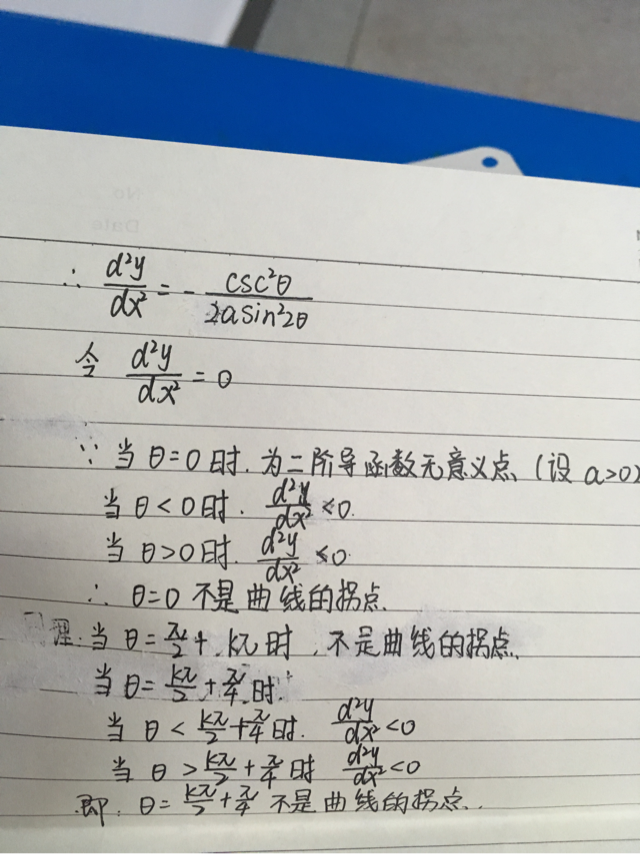 ∴ d²y/dx² = - csc²θ/2a sin²2θ
令 d²y/dx² = 0
∵ 当 θ=0 时. 为二阶导函数无意义点 (设 a>0)
当 θ<0 时. d²y/dx² ≤0.
当 θ>0 时. d²y/dx² ≤0
∴ θ=0 不是曲线的拐点.
理: 当 θ=π/2+kπ 时, 不是曲线的拐点.
当 θ=kπ/2+π/4 时.
当 θ<kπ/2+π/4 时. d²y/dx²<0
当 θ>kπ/2+π/4 时 d²y/dx²<0
即: θ=kπ/2+π/4 不是曲线的拐点.